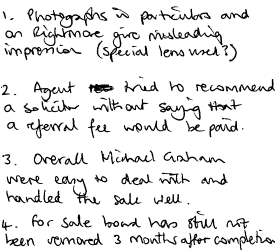 1. Photographs in particulars and
on Rightmove give misleading
impression (special lens used?)
2. Agent tried to recommend
a solicitor without saying that
a referral fee would be paid.
3. Overall Michael Graham
were easy to deal with and
handled the sale well.
4. For sale board has still not
been removed 3 months after completion